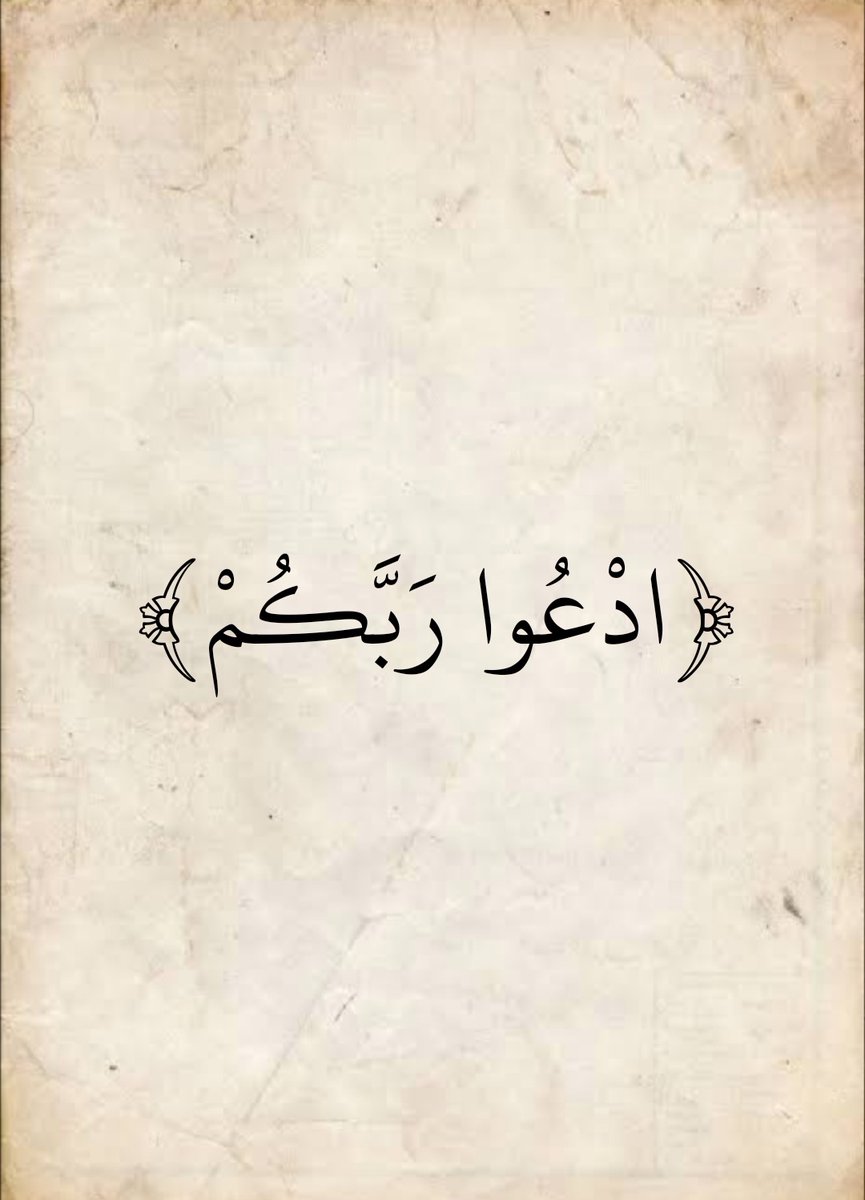 ﴿ادْعُوا رَبَّكُمْ﴾